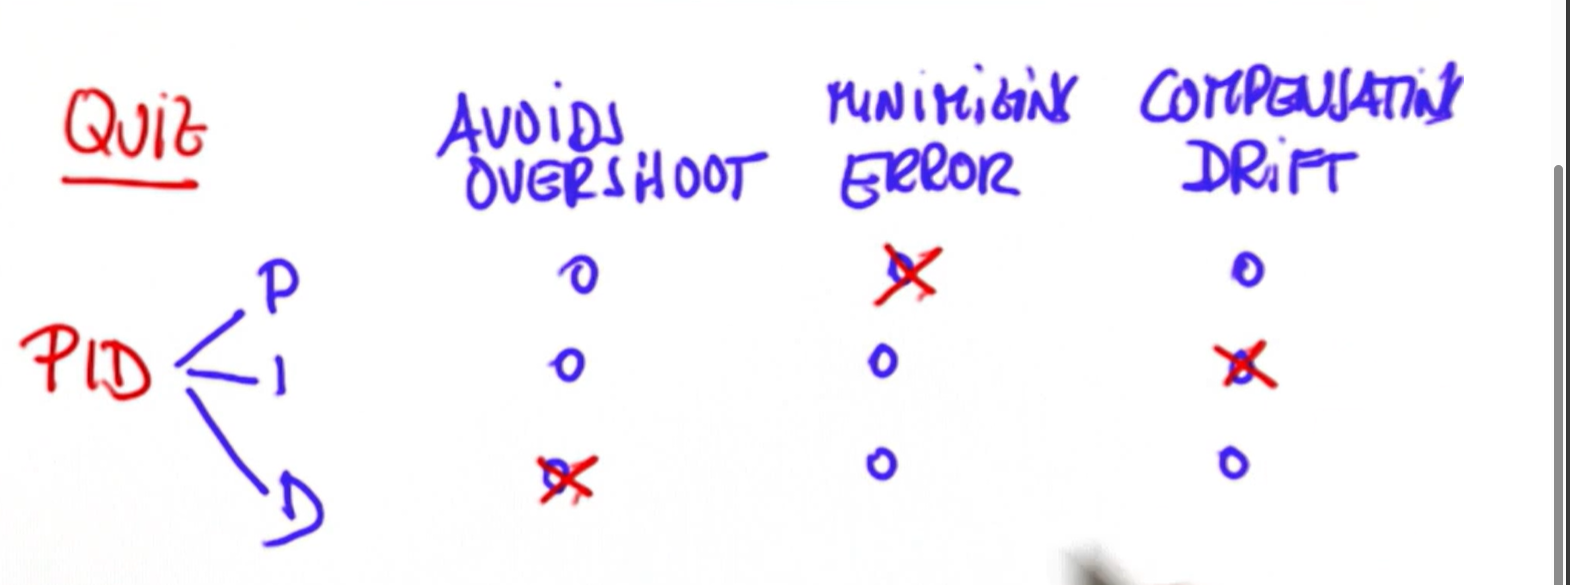 QUIZ
AVOIDS
OVERSHOOT
MINIMIZING
ERROR
COMPENSATING
DRIFT
P
PID
I
D